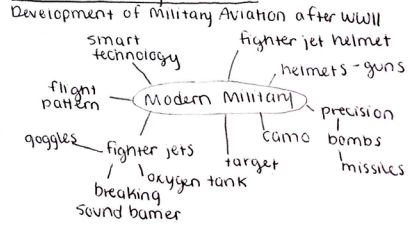 Development of Military Aviation after WWII
smart
technology
fighter jet helmet
helmets - guns
flight
pattern
Modern Military
precision
bombs
missiles
camo
target
goggles
fighter jets
oxygen tank
breaking
sound barrier